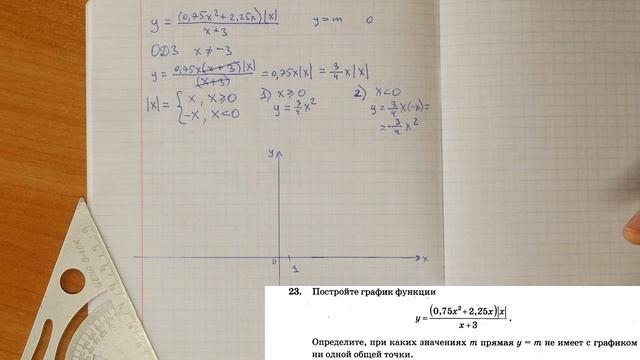 y = (0,75x² + 2,25x)|x| / x+3    y = m    0
ОДЗ x ≠ -3
y = 0,75x(x+3)|x| / (x+3) = 0,75x|x| = 3/4 x|x|
|x| = { x, x ≥ 0    1) x ≥ 0    2) x < 0
-x, x < 0    y = 3/4 x²    y = 3/4 x(-x) =
= -3/4 x²
y
0 1 x
23. Постройте график функции
y = (0,75x² + 2,25x)|x| / x+3 .
Определите, при каких значениях m прямая y = m не имеет с графиком
ни одной общей точки.